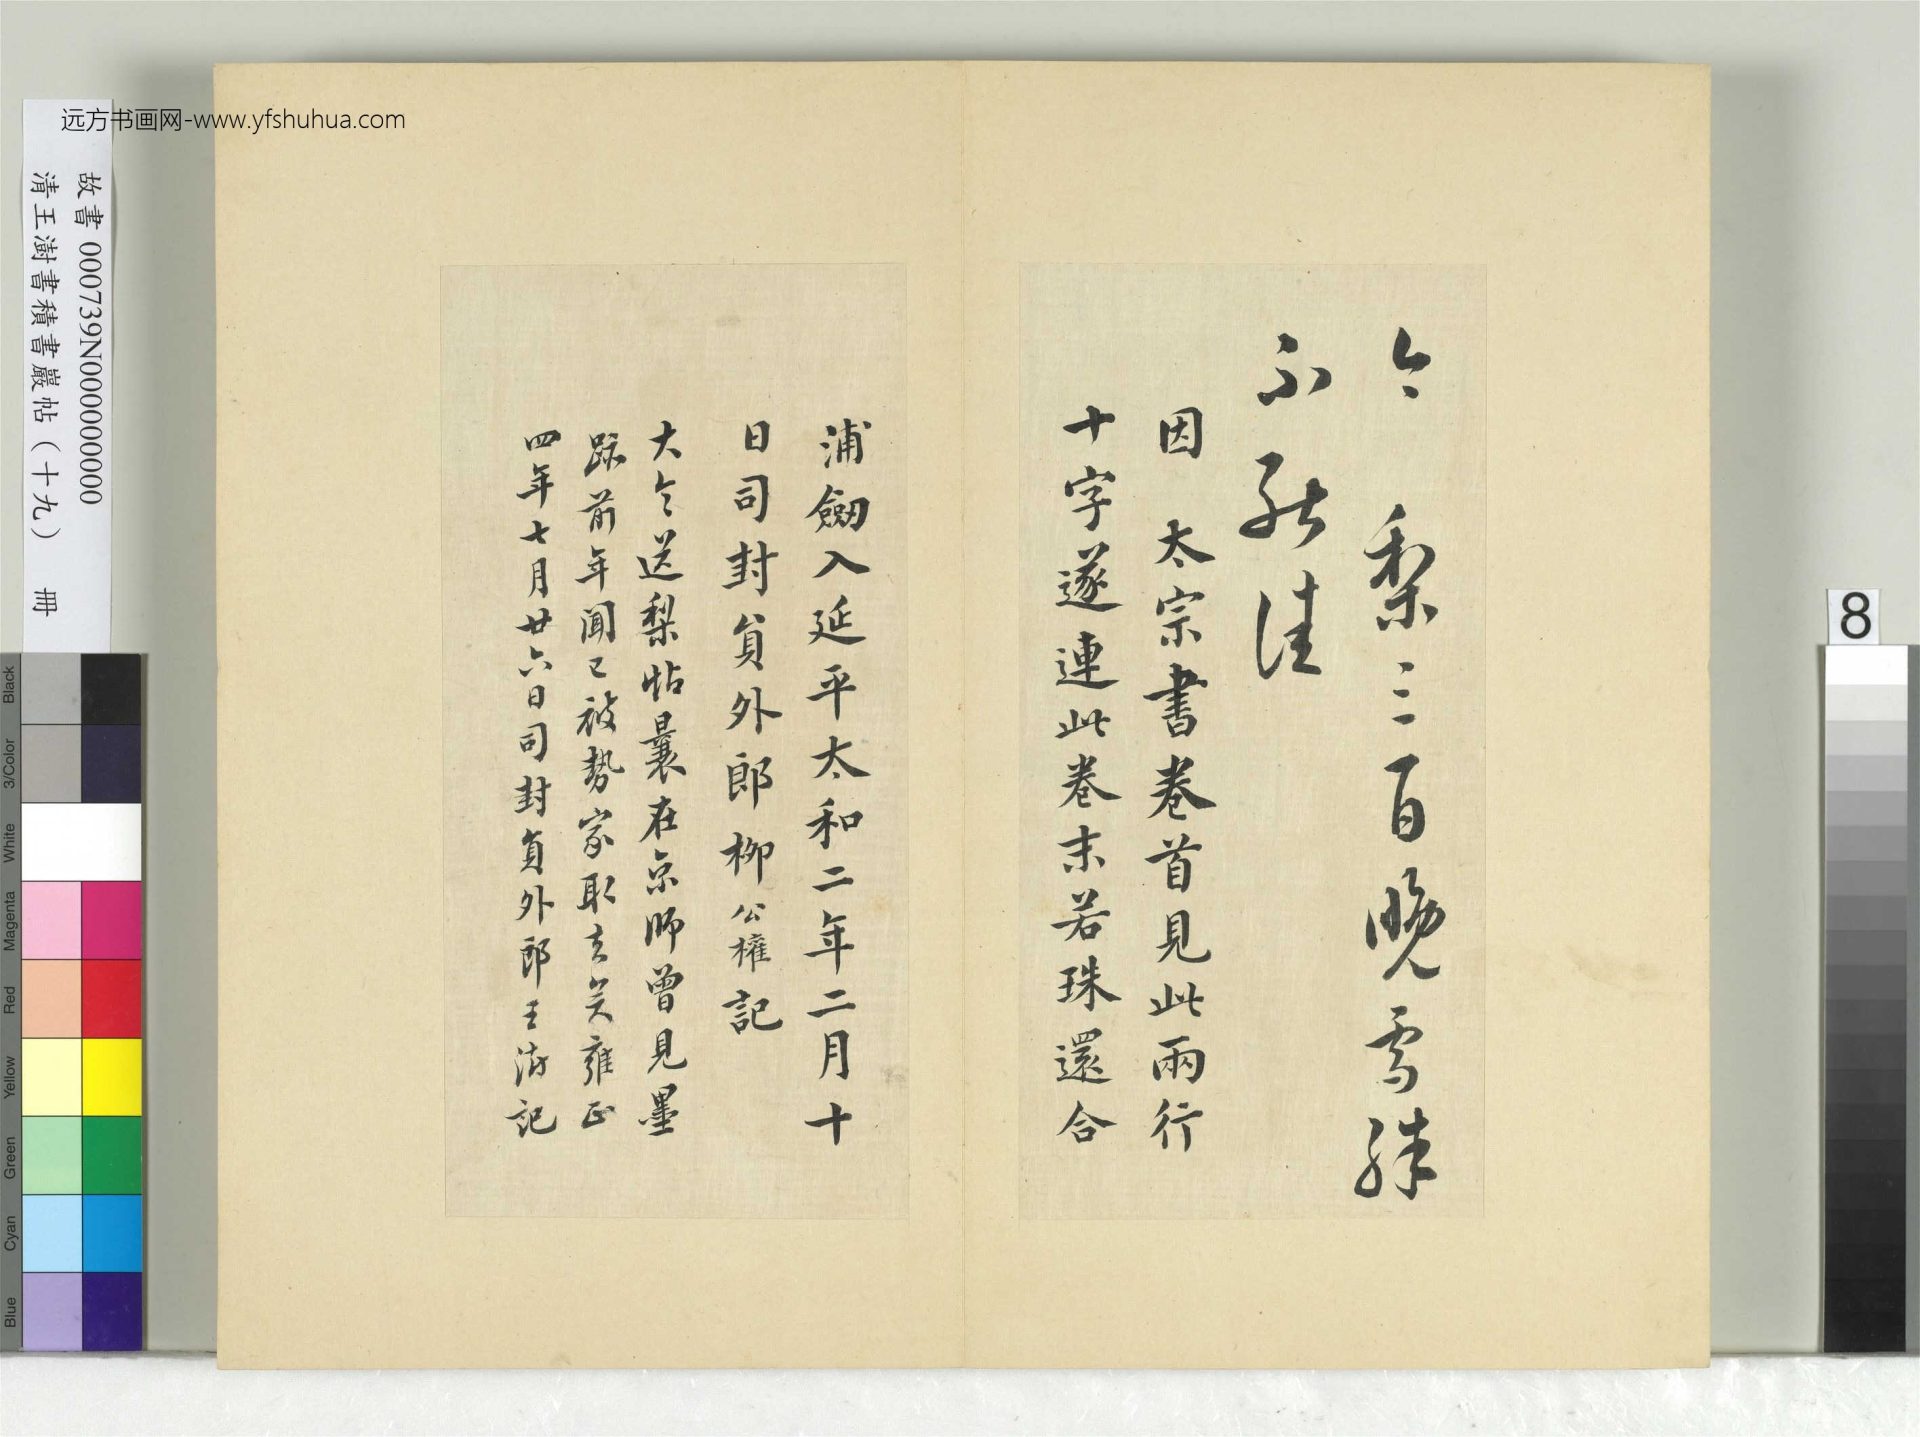 远方书画网-www.yfshuhua.com
故書 000739N000000000
清王澍書積書巖帖（十九） 冊
今 梨三百晚雪殊
不能佳
因 太宗書卷首見此兩行
十字遂連此卷末若珠還合
浦劒入延平太和二年二月十
日司封負外郎柳公權記
大令送梨帖曩在京師曾見墨
跡前年聞已被勢家取去矣雍正
四年七月廿六日司封負外郎王澍記
8
Black
3/Color
White
Magenta
Red
Yellow
Green
Cyan
Blue